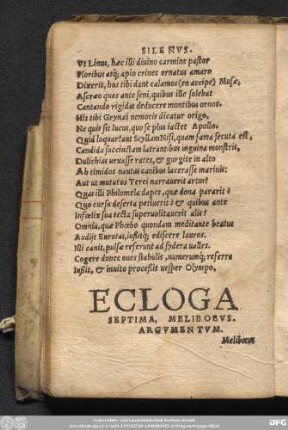 SILENVS.
Vt Linus, hæc illi diuino carmine pastor
Floribus atq; apio crines ornatus amaro
Dixerit, hos tibi dant calamos (en accipe) Musæ,
Ascræo quos ante seni, quibus ille solebat
Cantando rigidas deducere montibus ornos.
His tibi Grynæi nemoris dicatur origo,
Ne quis sit lucus, quo se plus iactet Apollo.
Quid loquar? aut Scyllam Nisi, quam fama secuta est,
Candida succinctam latrantibus inguina monstris,
Dulichias uexasse rates, & gurgite in alto
Ah timidos nautas canibus lacerasse marinis:
Aut ut mutatos Terei narrauerit artus?
Quas illi Philomela dapes, quæ dona pararit?
Quo cursu deserta petiuerit? & quibus ante
Infœlix sua tecta superuolitauerit alis?
Omnia, quæ Phœbo quondam meditante beatus
Audijt Eurotas, iussitq; ediscere lauros.
Illi canit, pulsæ referunt ad sydera ualles.
Cogere donec oues stabulis, numerumq; referre
Iussit, & inuito processit uesper Olympo.
ECLOGA
SEPTIMA, MELIBOEVS.
ARGVMENTVM.
Melibœus